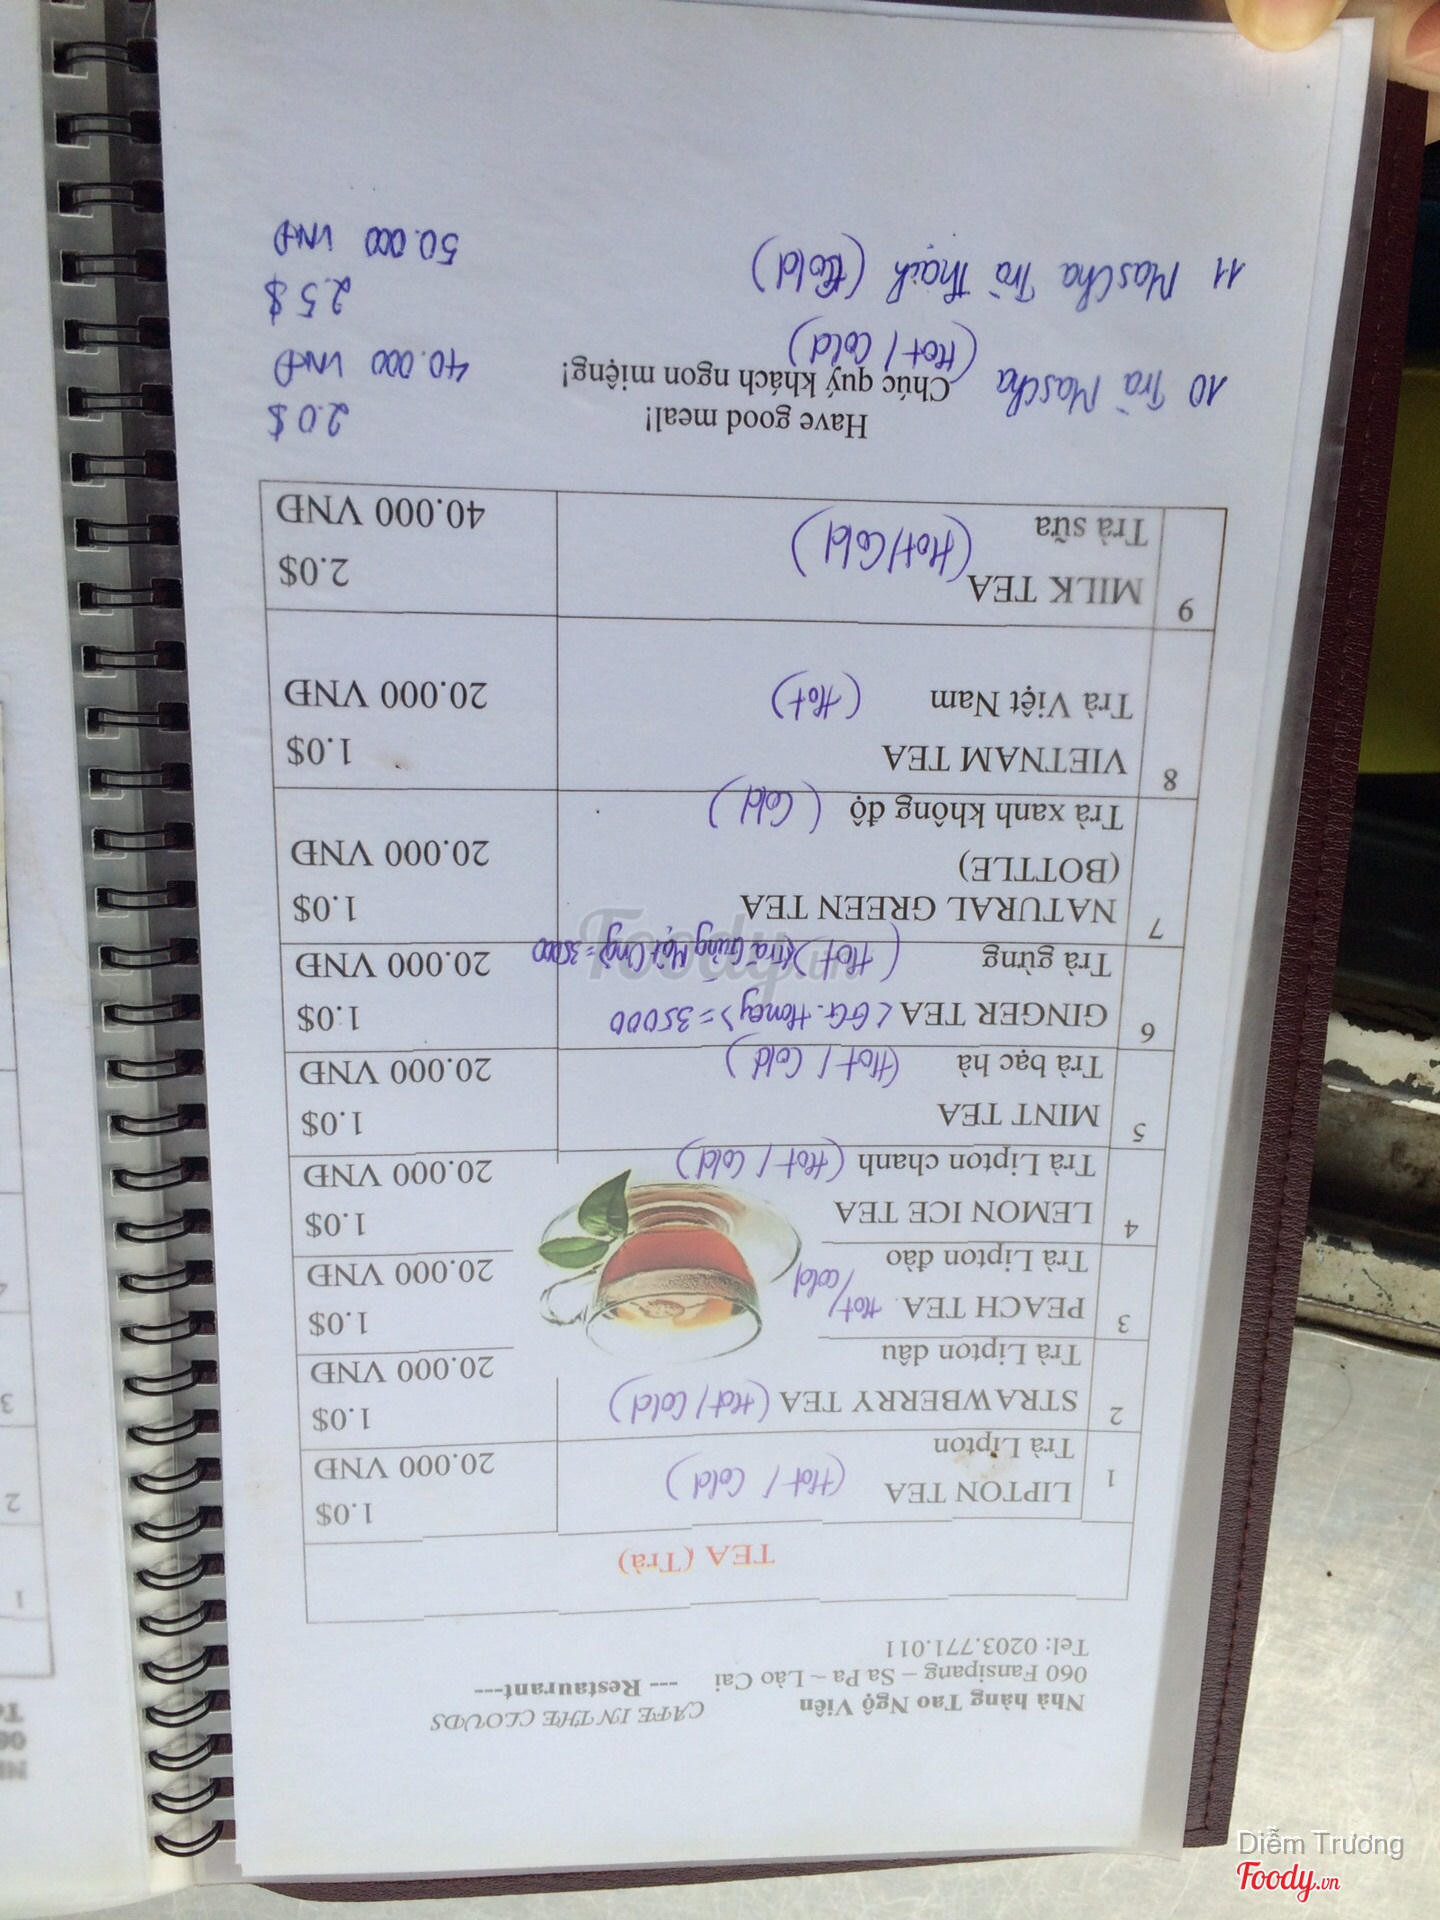 Nhà hàng Tao Ngộ Viên
CAFE IN THE CLOUDS
060 Fansipang – Sa Pa – Lào Cai
--- Restaurant---
Tel: 0203.771.011
TEA (Trà)
1 LIPTON TEA (Hot / Cold) 1.0$
Trà Lipton 20.000 VNĐ
2 STRAWBERRY TEA (Hot / Cold) 1.0$
Trà Lipton dâu 20.000 VNĐ
3 PEACH TEA. Hot/ 1.0$
Trà Lipton đào /cold 20.000 VNĐ
4 LEMON ICE TEA 1.0$
Trà Lipton chanh (Hot / Cold) 20.000 VNĐ
5 MINT TEA 1.0$
Trà bạc hà (Hot / Cold) 20.000 VNĐ
6 GINGER TEA < GG. Honey > = 35000 1.0$
Trà gừng (Hot) (trà Gừng Mật Ong) = 35000 20.000 VNĐ
7 NATURAL GREEN TEA 1.0$
(BOTTLE) 20.000 VNĐ
Trà xanh không độ (Cold)
8 VIETNAM TEA 1.0$
Trà Việt Nam (Hot) 20.000 VNĐ
9 MILK TEA (Hot/Cold) 2.0$
Trà sữa 40.000 VNĐ
Have good meal! 2.0 $
Chúc quý khách ngon miệng!
10 Trà Mascha (Hot / Cold) 40.000 VNĐ
2.5 $
11 Mascha Trà Thạch (Cold) 50.000 VNĐ
Foody.vn
1
2
3
4
Diễm Trương
Foody.vn